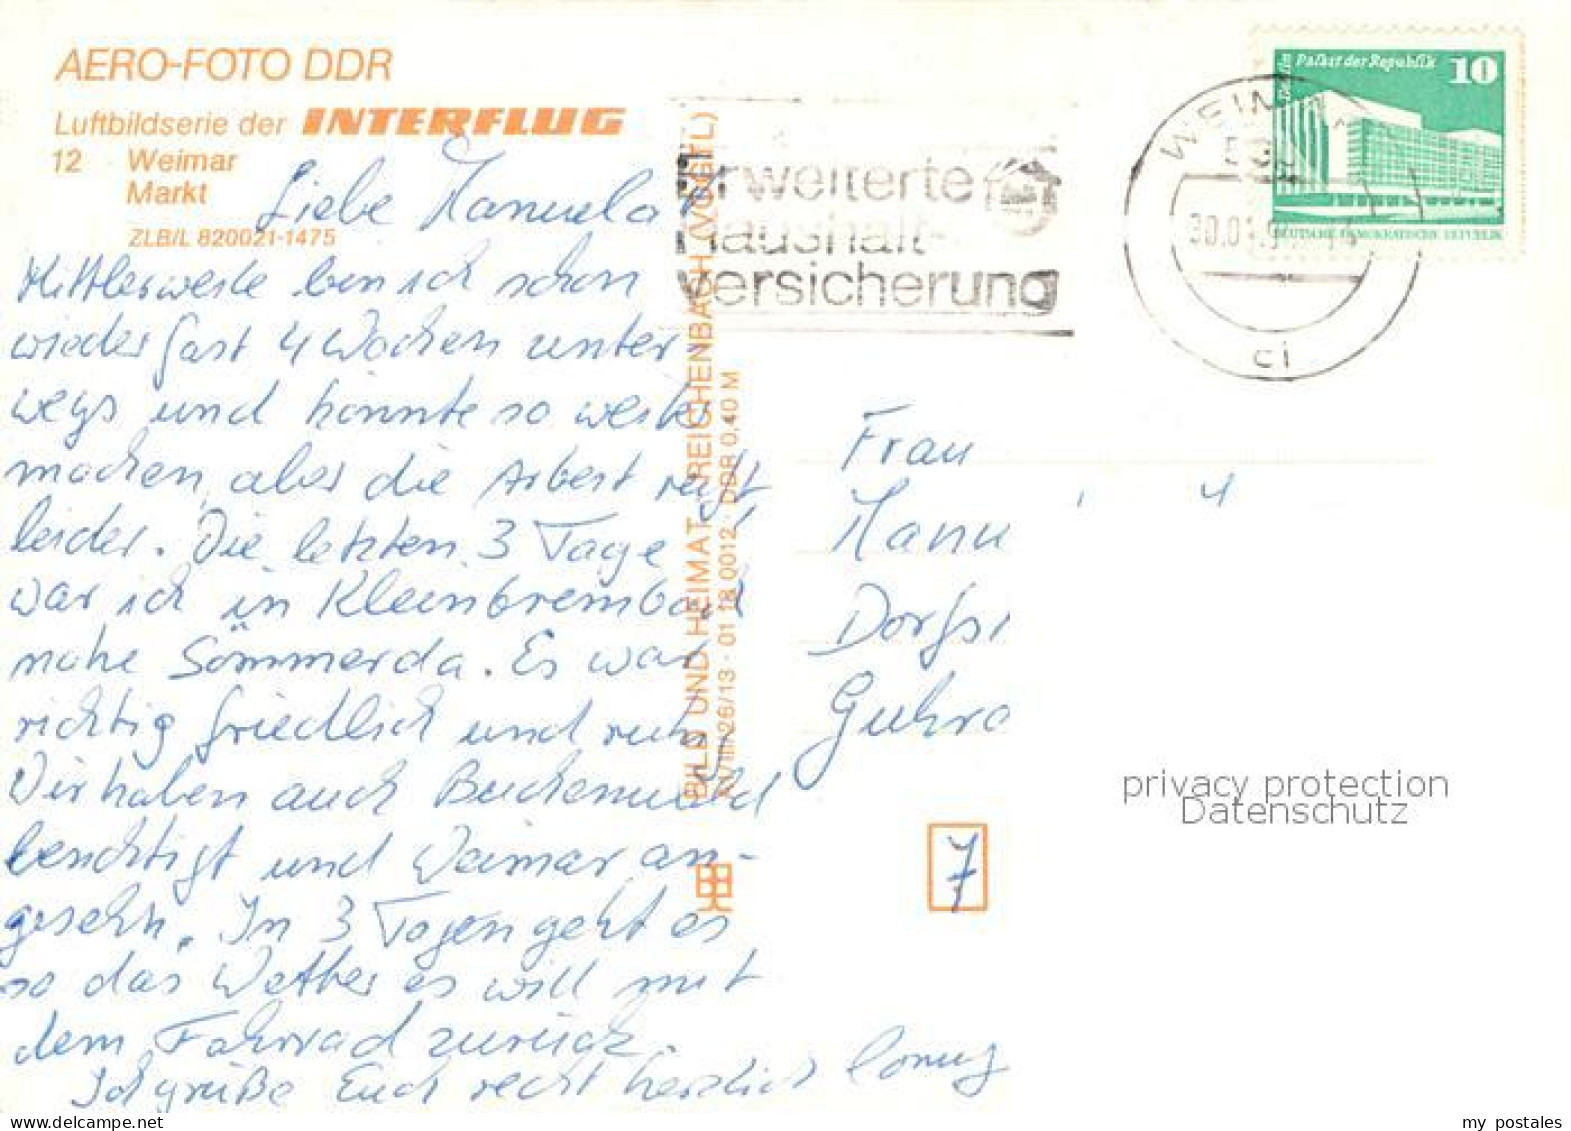 AERO-FOTO DDR
Luftbildserie der INTERFLUG
12 Weimar
Markt
ZLB/L 820021-1475
Liebe Manuela
Mittlerweile bin ich schon
wieder fast 4 Wochen unter-
wegs und könnte so weiter
machen, aber die Arbeit ruft
leider. Die letzten 3 Tage
war ich in Kleinbrembach
nahe Sömmerda. Es war
richtig friedlich und ruhig
Wir haben auch Buchenwald
besichtigt und Weimar an-
gesehn. In 3 Tagen geht es
so das Wetter es will mit
dem Fahrrad zurück.
Ich grüße Euch recht herzlich
BILD UND HEIMAT REICHENBACH (VOGTL)
26/13 · 01 18 0012 · DDR 0,40 M
Erweiterte
Haushalt-
versicherung
WEIMAR
ci
Berlin Palast der Republik 10
DEUTSCHE DEMOKRATISCHE REPUBLIK
Frau
Manu
Dorfst
Guhro
7
privacy protection
Datenschutz
my postales